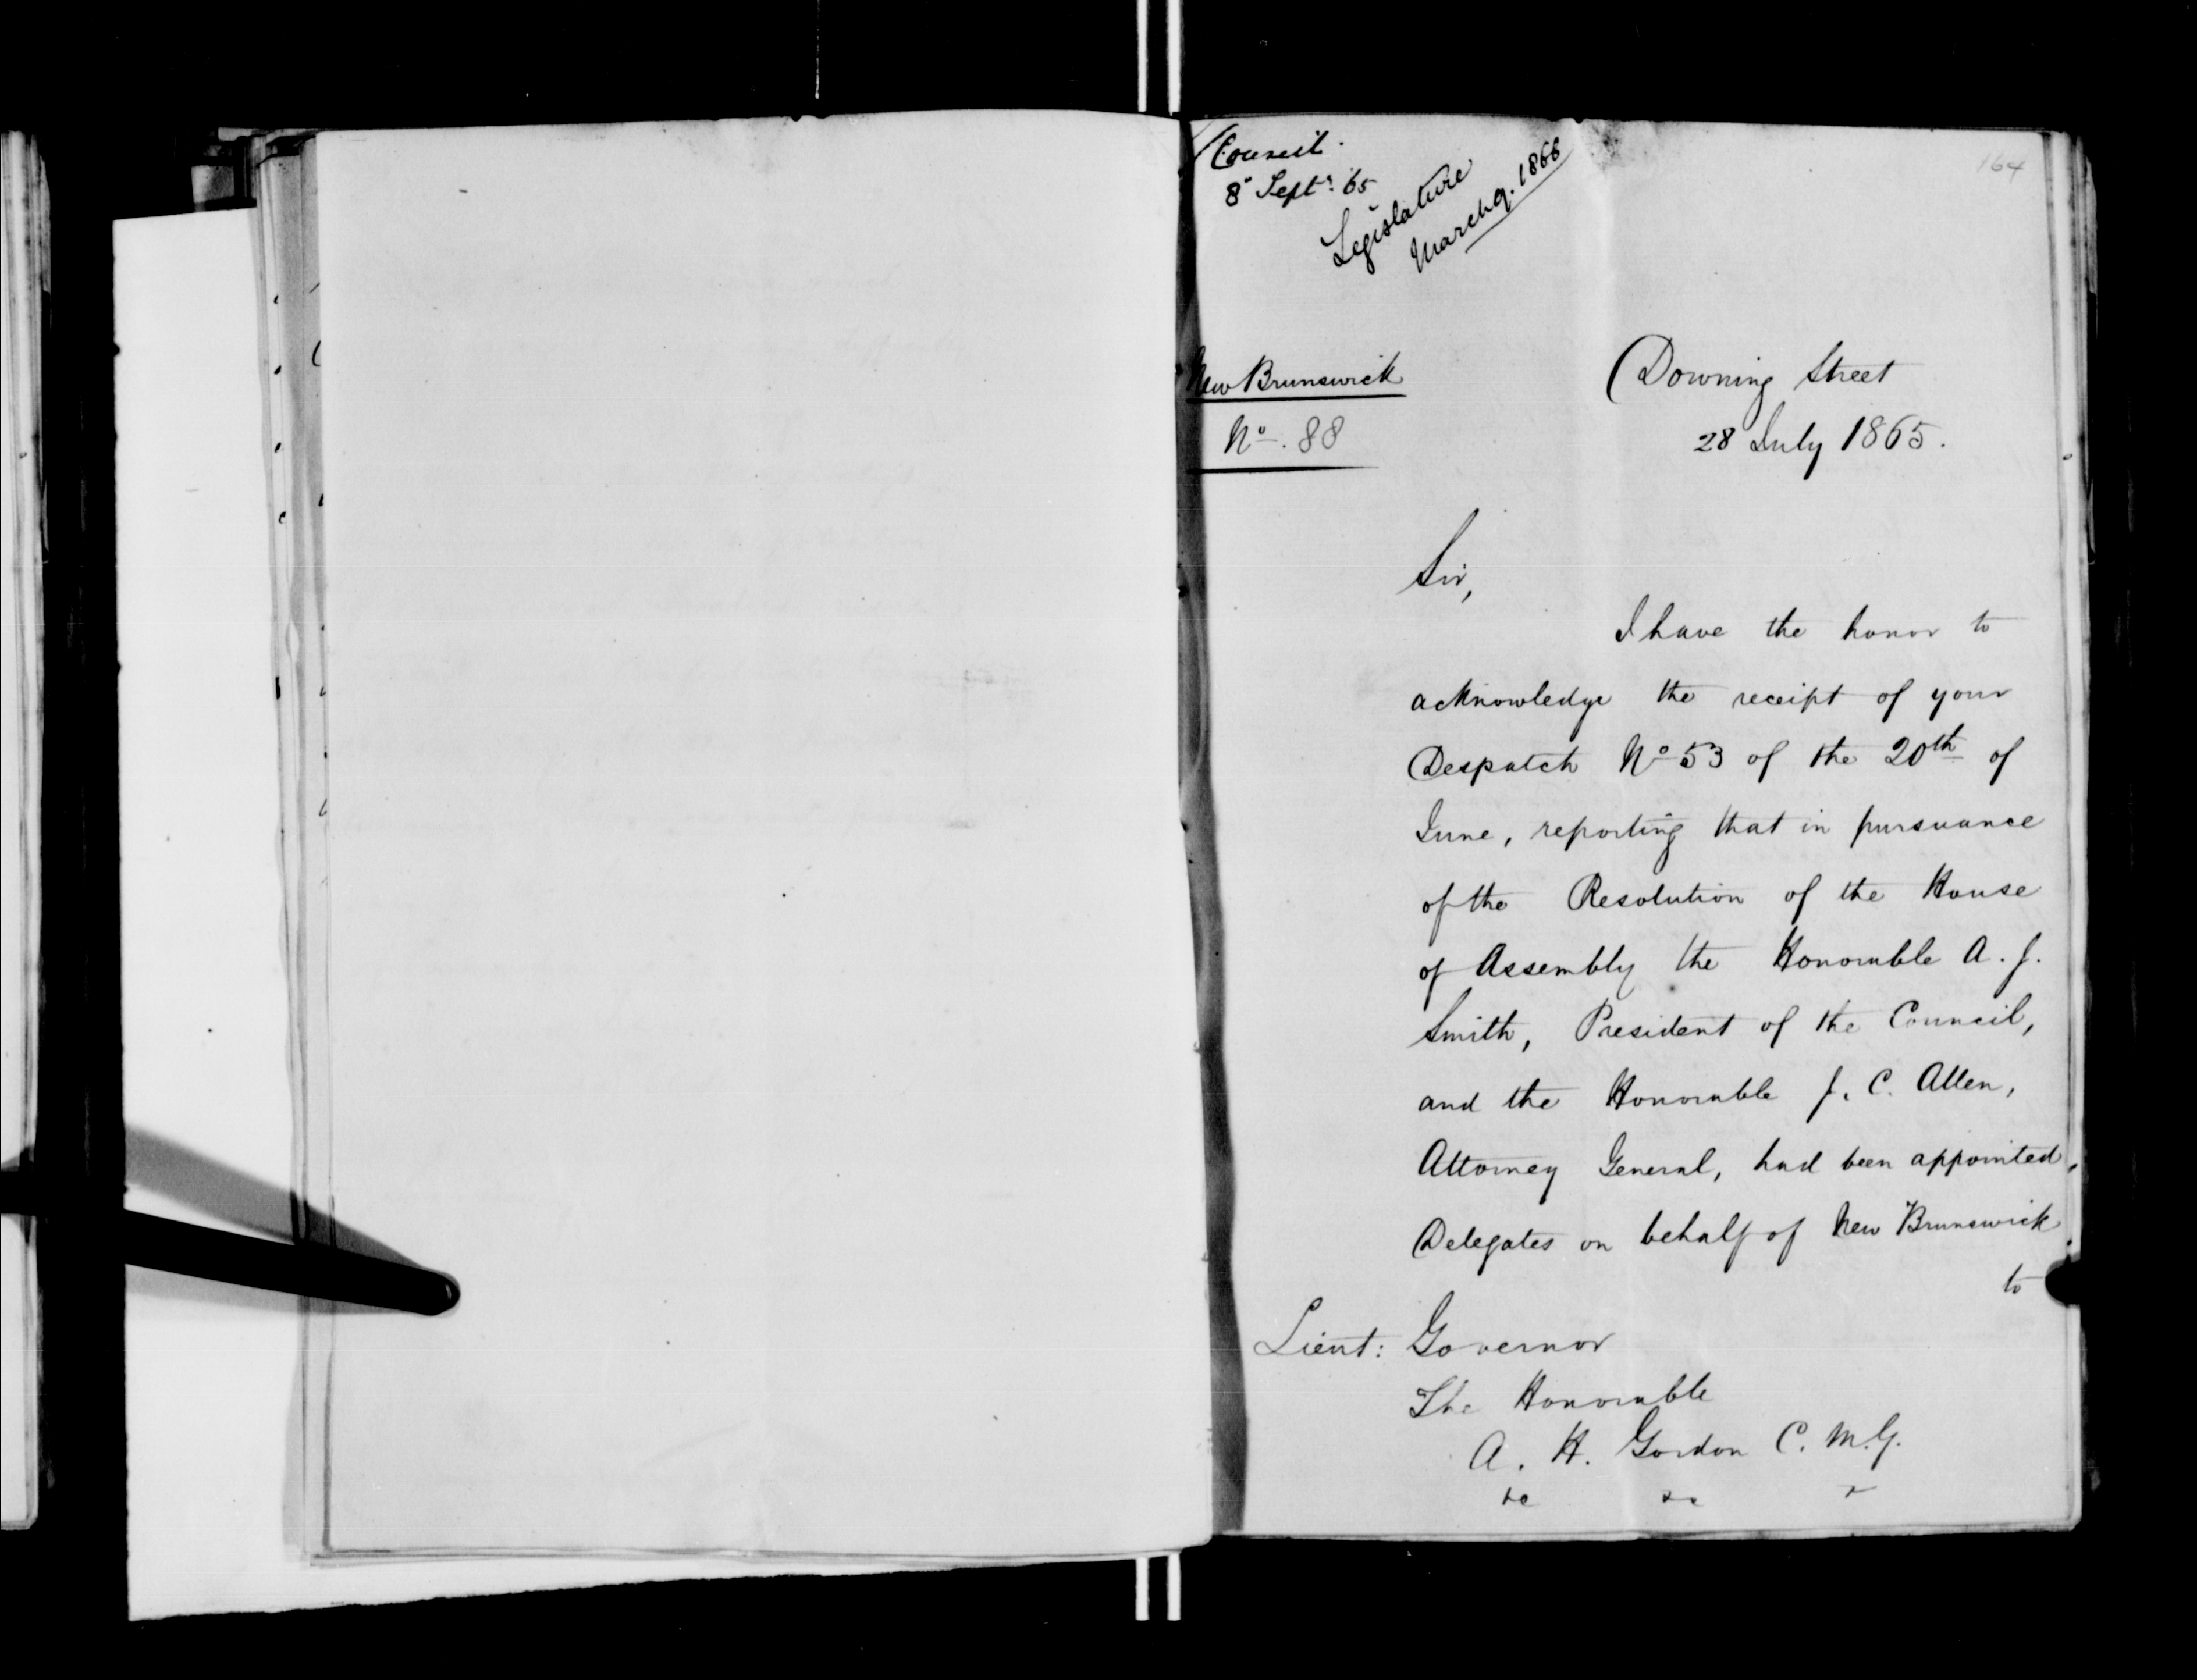 Council.
8" Septr: 65
Legislature
March 9. 1866
164
New Brunswick
No. 88
Downing Street
28 July 1865.
Sir,
I have the honor to
acknowledge the receipt of your
Despatch No 53 of the 20th of
June, reporting that in pursuance
of the Resolution of the House
of Assembly the Honorable A. J.
Smith, President of the Council,
and the Honorable J. C. Allen,
Attorney General, had been appointed
Delegates on behalf of New Brunswick
to
Lieut: Governor
The Honorable
A. H. Gordon C. M. G.
&c &c &